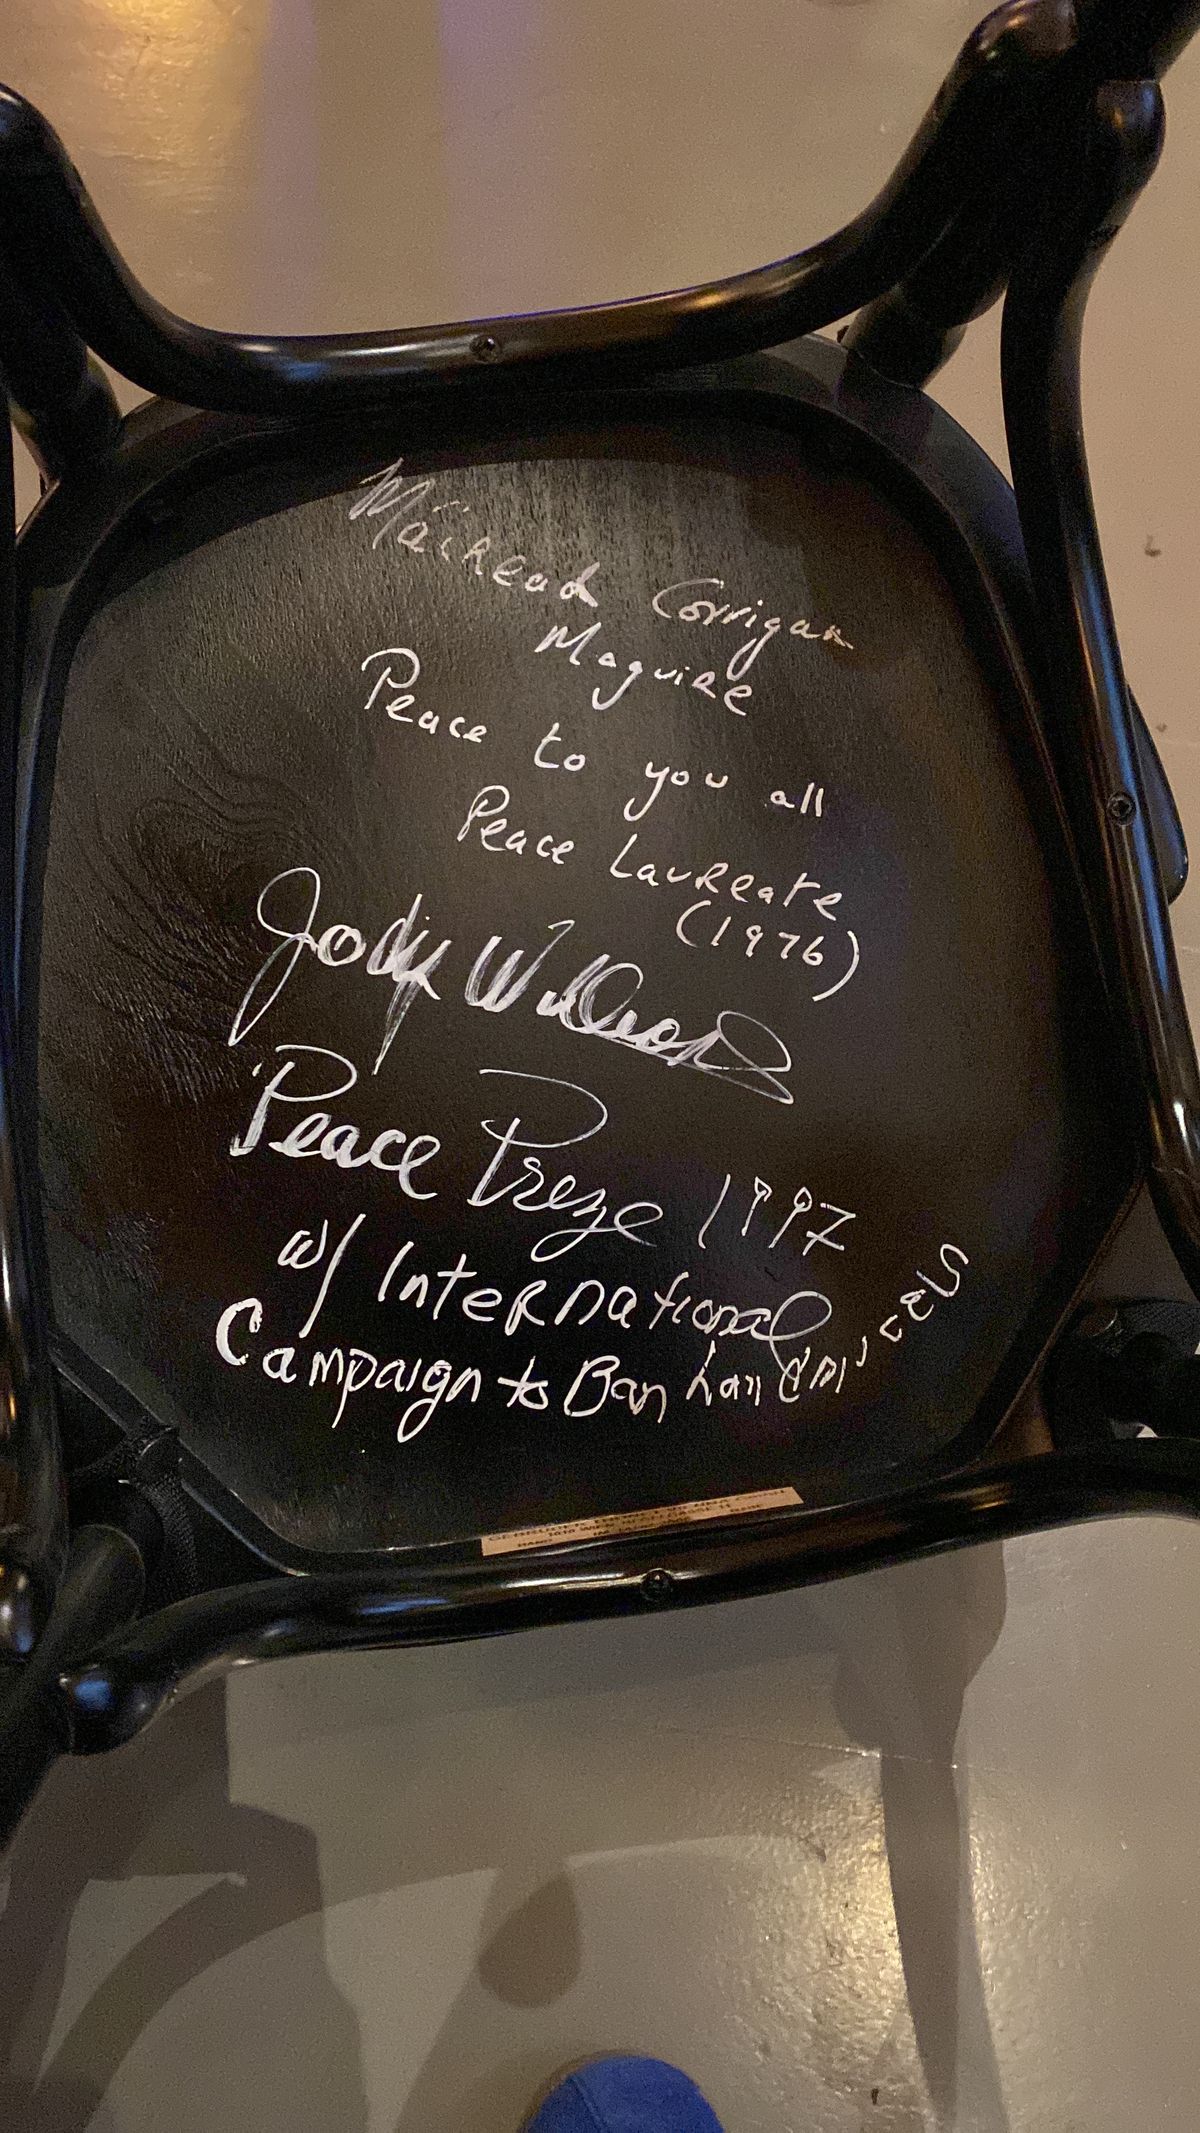 Máiread Corrigan
Maguire
Peace to you all
Peace Laureate
(1976)
Jody Williams
Peace Prize 1997
w/ International
Campaign to Ban Landmines
GEBRUDER THONET VIENNA